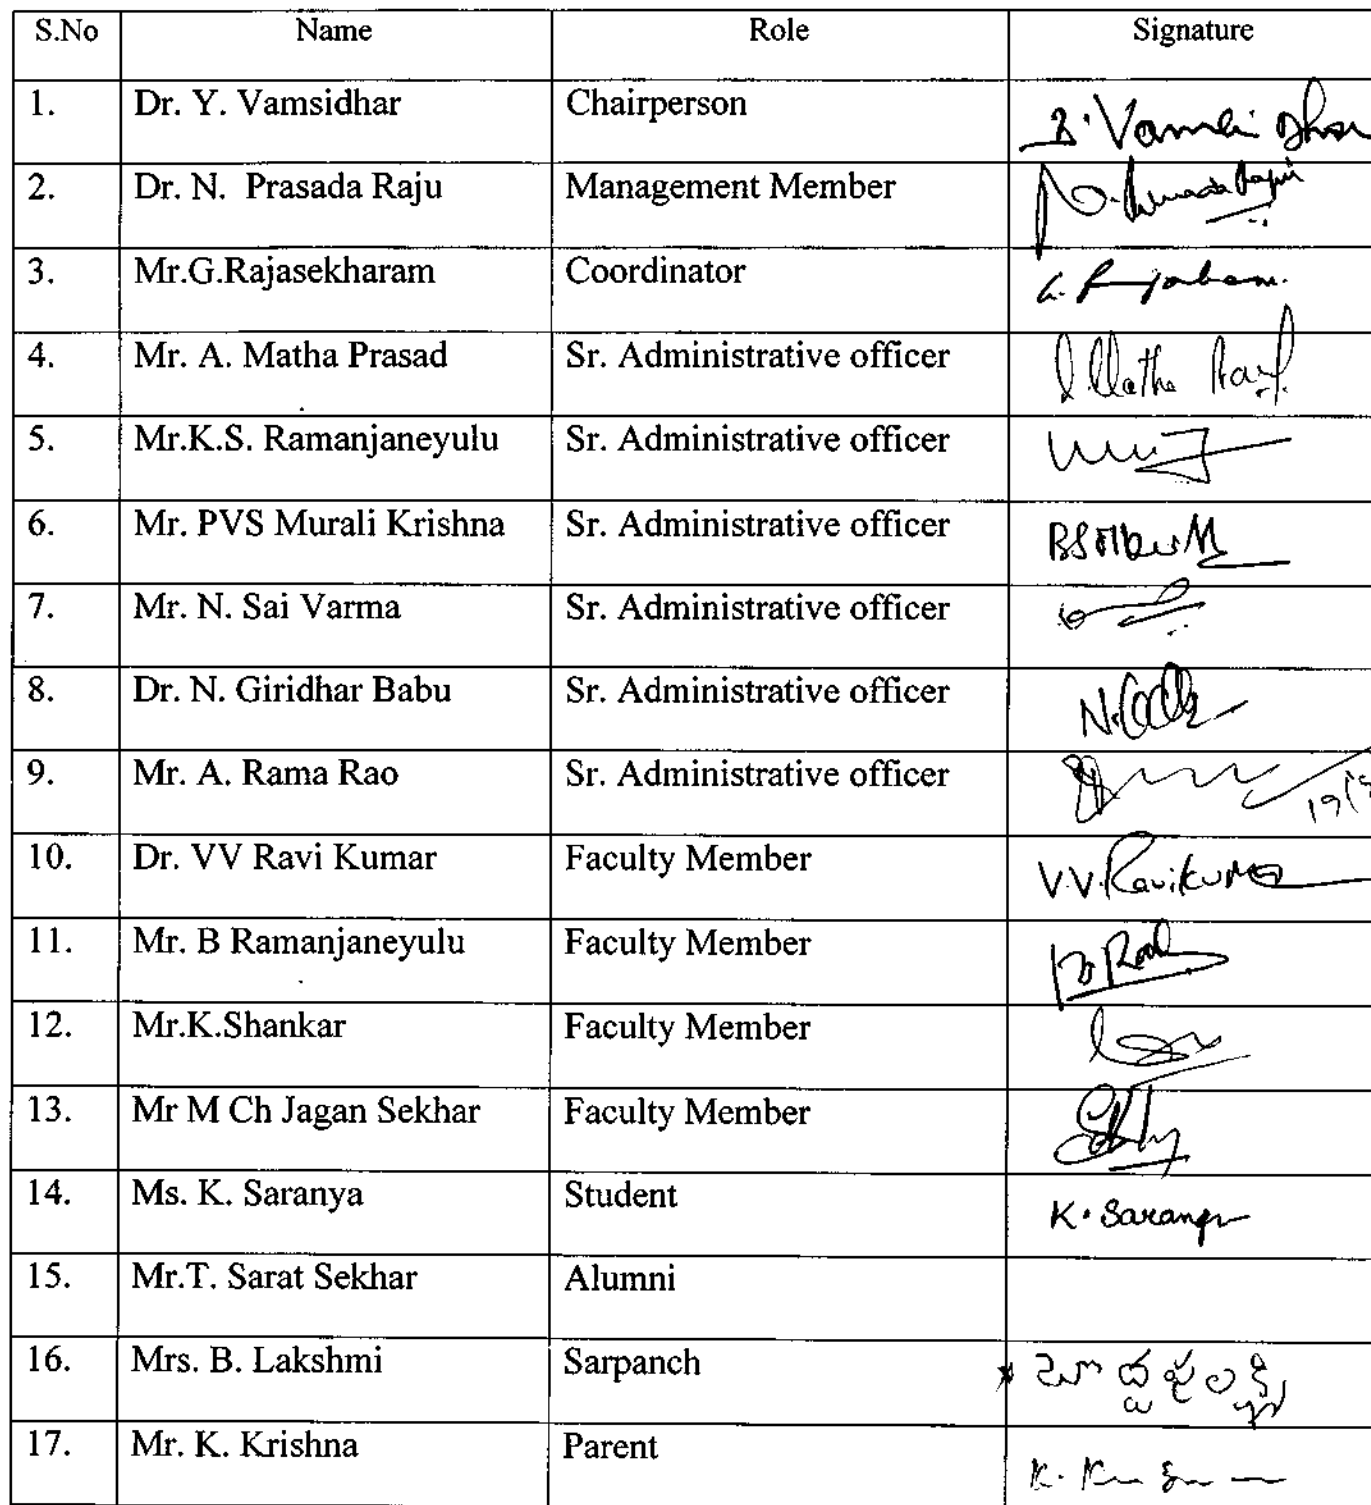 S.No Name Role Signature
1. Dr. Y. Vamsidhar Chairperson
2. Dr. N. Prasada Raju Management Member
3. Mr.G.Rajasekharam Coordinator
4. Mr. A. Matha Prasad Sr. Administrative officer
5. Mr.K.S. Ramanjaneyulu Sr. Administrative officer
6. Mr. PVS Murali Krishna Sr. Administrative officer
7. Mr. N. Sai Varma Sr. Administrative officer
8. Dr. N. Giridhar Babu Sr. Administrative officer
9. Mr. A. Rama Rao Sr. Administrative officer
10. Dr. VV Ravi Kumar Faculty Member V.V.Ravikumar
11. Mr. B Ramanjaneyulu Faculty Member
12. Mr.K.Shankar Faculty Member
13. Mr M Ch Jagan Sekhar Faculty Member
14. Ms. K. Saranya Student K. Saranya
15. Mr.T. Sarat Sekhar Alumni
16. Mrs. B. Lakshmi Sarpanch
17. Mr. K. Krishna Parent